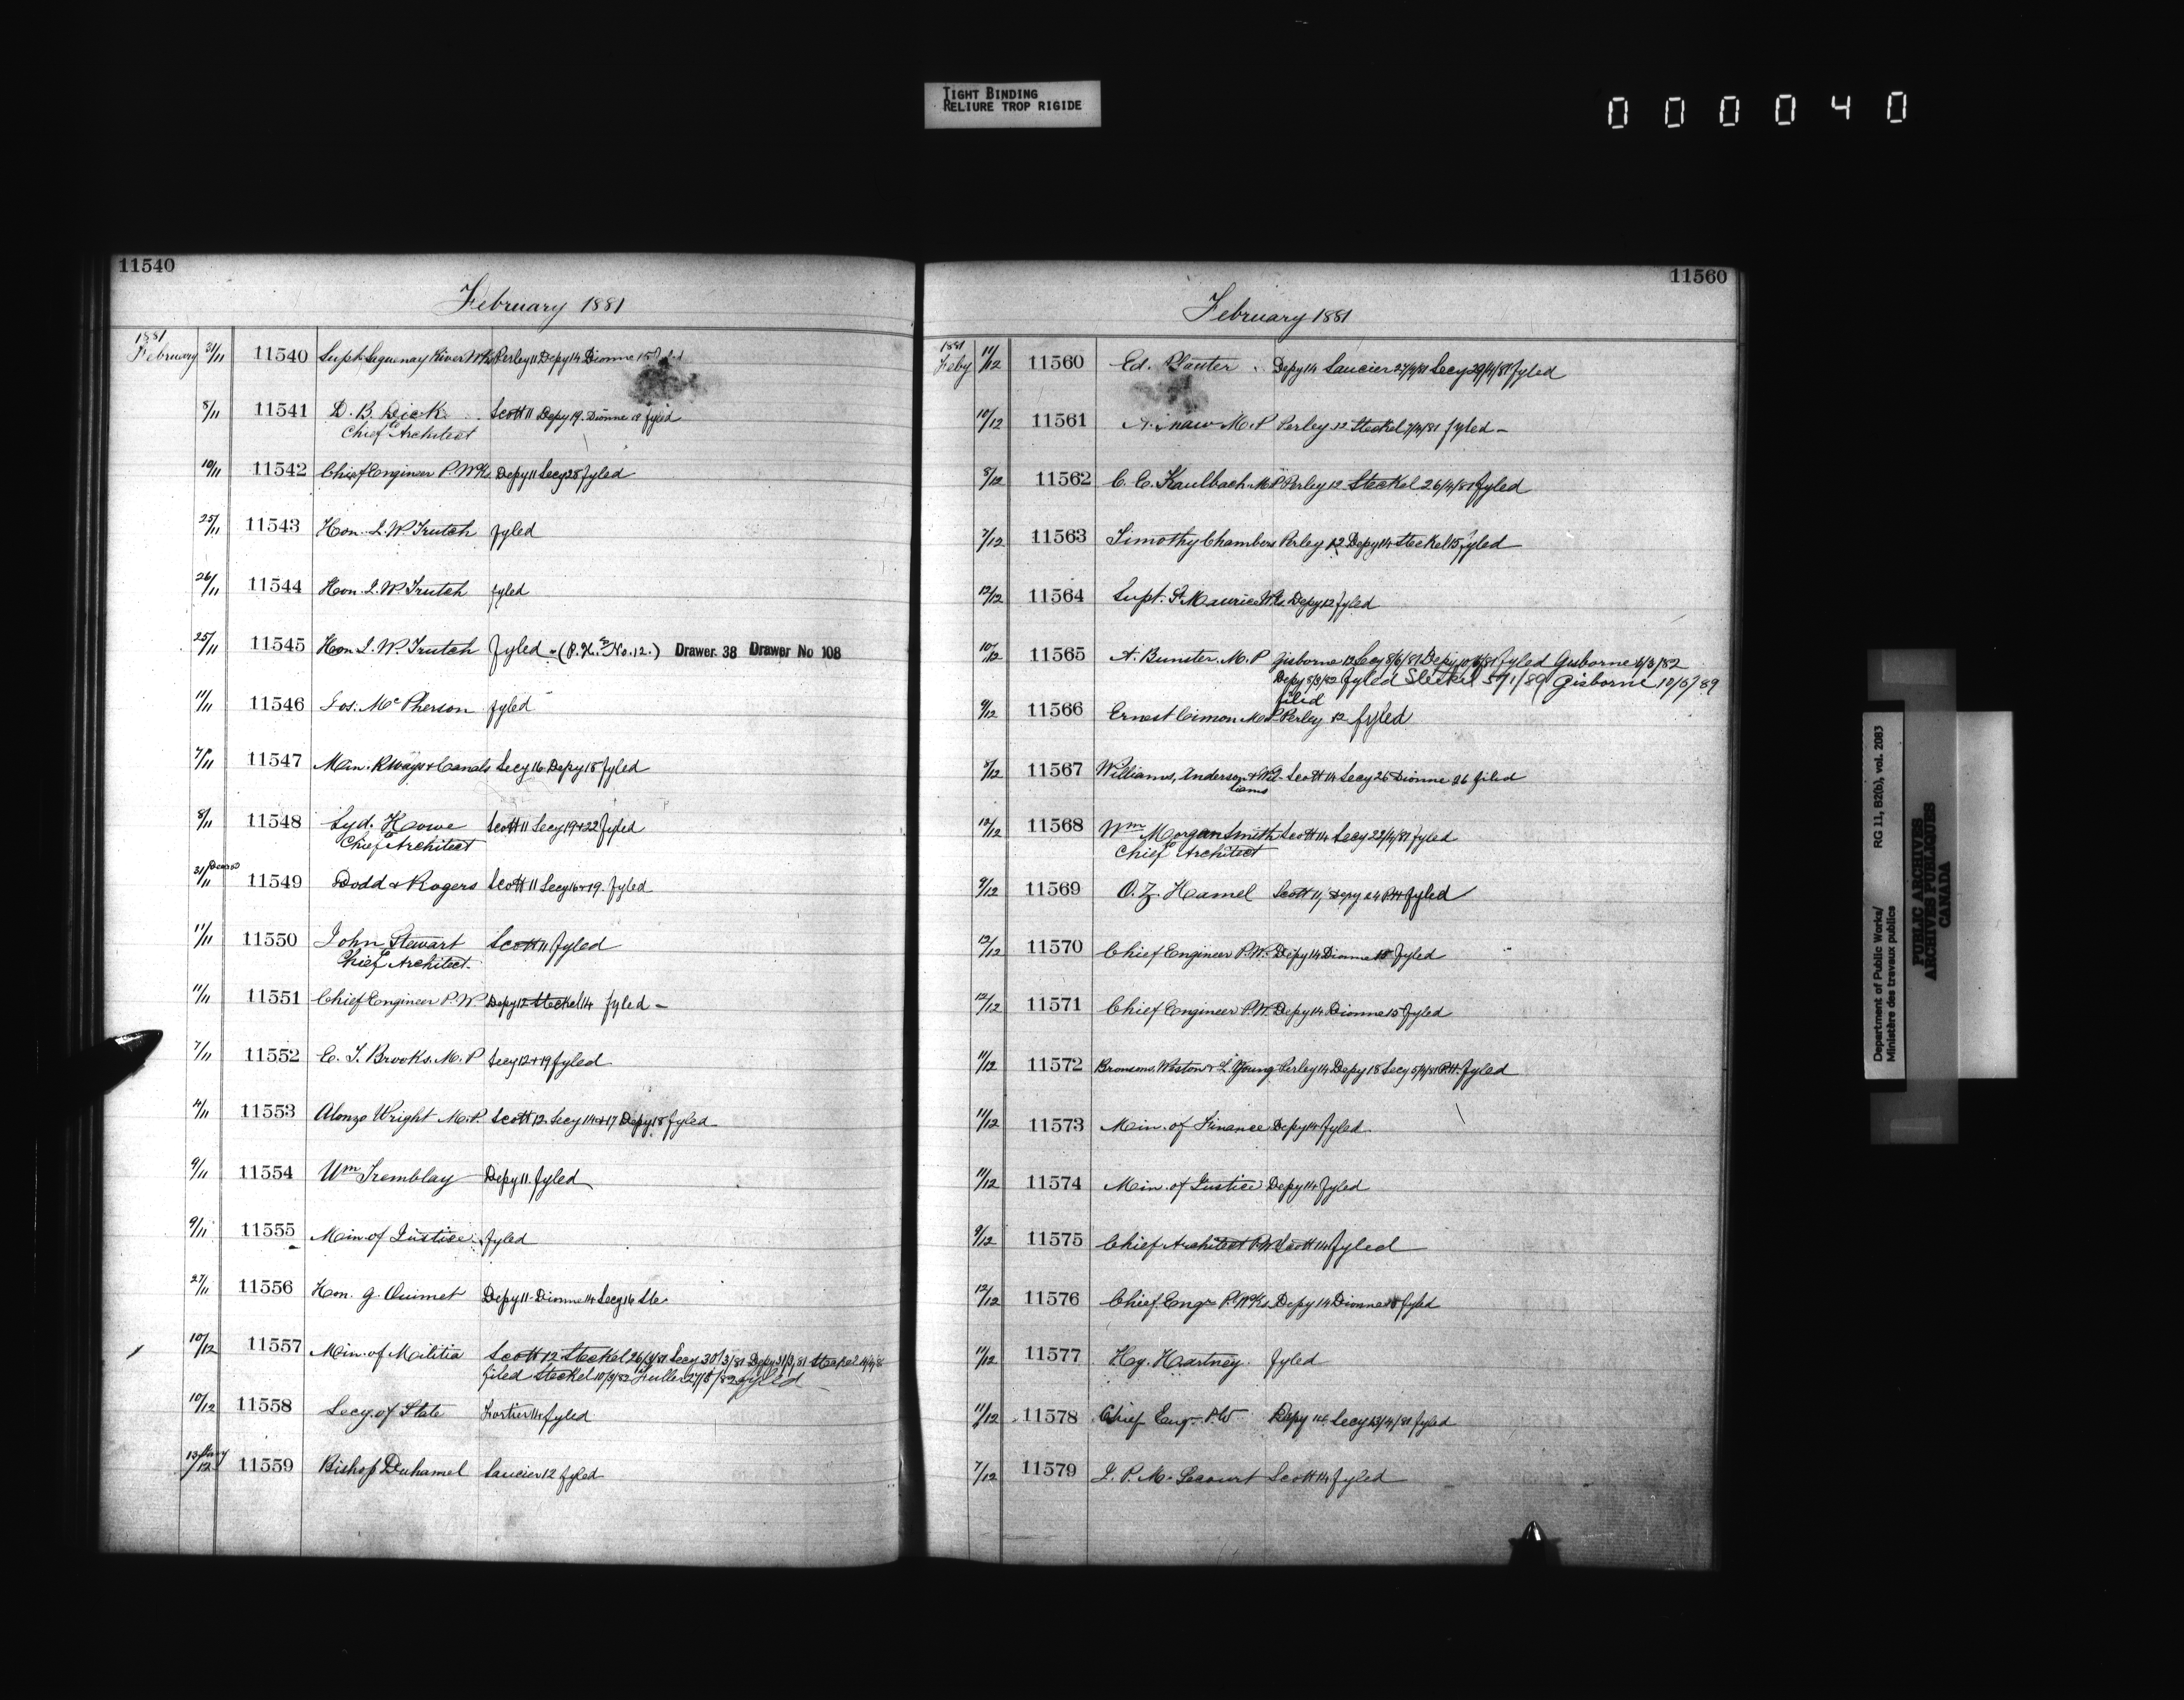 TIGHT BINDING
RELIURE TROP RIGIDE
000040
11540
February 1881
1881
February 31/11 11540 Supt Saguenay River Wks Perley 11 Depy 14 Dionne 15
8/11 11541 D. B. Dick Scott 11 Depy 19. Dionne 19 fyled
Chief Architect
10/11 11542 Chief Engineer P. Wks Depy 11 Secy 28 fyled
25/11 11543 Hon. J. W. Trutch fyled
26/11 11544 Hon. J. W. Trutch fyled
25/11 11545 Hon J. W. Trutch fyled - (No. 12.) Drawer. 38 Drawer No 108
11/11 11546 Jos. McPherson fyled
7/11 11547 Min. Rways & Canals Secy 16 Depy 18 fyled
8/11 11548 Syd. Howe Scott 11 Secy 19+22 fyled
Chief Architect
31/11 11549 Dodd & Rogers Scott 11 Secy 16+19. fyled
11/11 11550 John Stewart Scott 11 fyled
Chief Architect.
11/11 11551 Chief Engineer P. W Depy 12 Steckel 14 fyled -
7/11 11552 E. T. Brooks. M. P Secy 12+19 fyled
4/11 11553 Alonzo Wright M. P. Scott 12. Secy 14+17 Depy 18 fyled
9/11 11554 Wm Tremblay Depy 11. fyled
9/11 11555 Min. of Justice fyled
27/11 11556 Hon. G. Ouimet Depy 11 - Dionne 14 Secy 16
10/12 11557 Min. of Militia Scott 12 Steckel 26/3/81 Secy 30/3/81 Depy 31/3/81 Steckel
filed Steckel 10/3/82 Fuller 27/5/82 fyled
10/12 11558 Secy. of State Fortier 14 fyled
13/12 11559 Bishop Duhamel Saucier 12 fyled
11560
February 1881
1881
Feby 11/12 11560 Ed. Depy 14 Saucier Secy 29/4/81 fyled
10/12 11561 M. P Perley 12 Steckel fyled -
8/12 11562 C. E. Kaulbach M P Perley 12 Steckel 26/4/81 fyled
7/12 11563 Timothy Chambers Perley 12 Depy 14 Steckel 15 fyled
12/12 11564 Supt. St. Maurice Wks. Depy 12 fyled
10/12 11565 A. Bunster. M. P Gisborne 12 Secy 8/6/81 Depy 10/6/81 fyled Gisborne 6/3/82
Depy 8/3/82 fyled Steckel 5/1/89 Gisborne 10/5/89
filed
9/12 11566 Ernest Cimon M. P. Perley 12 fyled
7/12 11567 Williams, Anderson & Wil- Scott 14 Secy 26 Dionne 26 filed
liams
10/12 11568 Wm Morgan Smith Scott 14 Secy 22/4/81 fyled
Chief Architect
9/12 11569 O. Z. Hamel Scott 14 Depy 24 fyled
12/12 11570 Chief Engineer P. W. Depy 14 Dionne 15 fyled
12/12 11571 Chief Engineer P. W. Depy 14 Dionne 15 fyled
11/12 11572 Bronsons, Weston & Young Perley 14 Depy 18 Secy fyled
11/12 11573 Min. of Finance Depy 14 fyled
11/12 11574 Min. of Justice Depy 14 fyled
9/12 11575 Chief Architect P. W. Scott 14 fyled
12/12 11576 Chief Engr P. Wks. Depy 14 Dionne fyled
11/12 11577 Hy. Hartney. fyled
11/12 11578 Chief Engr. P. W Depy 14 Secy 23/4/81 fyled
7/12 11579 J. P. M. Lecourt Scott 14 fyled
Department of Public Works/ RG 11, B2(b), vol. 2083
Ministère des travaux publics
PUBLIC ARCHIVES
ARCHIVES PUBLIQUES
CANADA